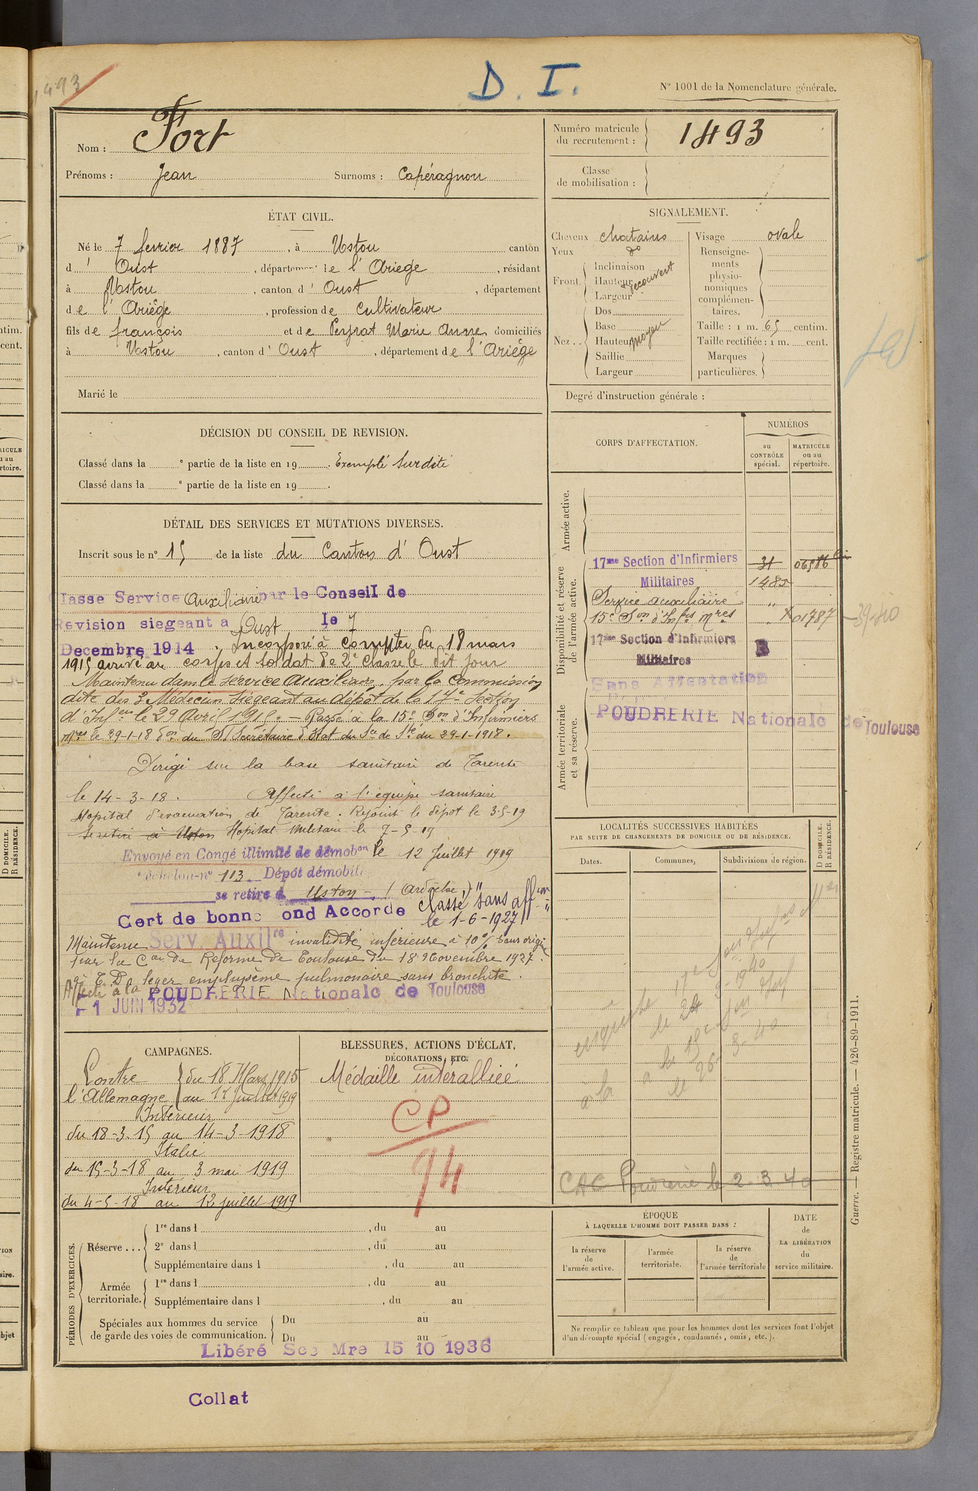 493
D. I.
N° 1001 de la Nomenclature générale.
Nom : Fort
Prénoms : Jean Surnoms : Capéragnou
Numéro matricule du recrutement : 1493
Classe de mobilisation :
ÉTAT CIVIL.
Né le 7 fevrier 1887, à Ustou canton
d' Oust, département de l'Ariège, résidant
à Ustou, canton d' Oust, département
de l'Ariège, profession de Cultivateur
fils de françois et de Peyrat Marie Anne domiciliés
à Ustou, canton d' Oust, département de l'Ariège
Marié le
SIGNALEMENT.
Cheveux chatains
Yeux do
Front. Inclinaison
Hauteur découvert
Largeur
Nez . . Dos
Base
Hauteur moyen
Saillie
Largeur
Visage ovale
Renseignements physionomiques complémentaires.
Taille : 1 m. 65 centim.
Taille rectifiée : 1 m. cent.
Marques particulières.
Degré d'instruction générale :
DÉCISION DU CONSEIL DE REVISION.
Classé dans la ° partie de la liste en 19 . Exempté Surdité
Classé dans la ° partie de la liste en 19 .
DÉTAIL DES SERVICES ET MUTATIONS DIVERSES.
Inscrit sous le n° 15 de la liste du Canton d' Oust
lasse Service Auxiliaire par le Conseil de
Revision siegeant a Oust le 7
Decembre 1914. Incorporé à compter du 18 mars
1915 arrivé au corps et soldat de 2e classe le dit jour
Maintenu dans le service auxiliaire par la Commission
dite des 3 Médecins Siégeant au dépôt de la 17e Section
d'Infiers le 29 Avril 1915. — Passé à la 15e Son d'Infirmiers
mres le 29-1-18 Son du S/ Secrétaire d'Etat du Sce de Sté du 24-1-1918.
Dirigé sur la base sanitaire de Tarente
le 14-3-18. Affecté à l'équipe sanitaire
Hopital d'évacuation de Tarente. Rejoint le dépot le 3-5-19
Se retire à Ustou Hopital Militaire le 7-5-19
Envoyé en Congé illimité de démobon le 12 Juillet 1919
échelon n° 113 Dépôt démobili
se retire à Ustou
Cert de bonne ond Accorde Classé "sans affon"
le 1-6-1927
Maintenu Serv. Auxilre invalidité inférieure à 10% Sans origi
par la Con de Réforme de Toulouse du 18 Novembre 1927.
léger emphysème pulmonaire sans bronchite.
Affecté à la POUDRERIE Nationale de Toulouse
1 JUIN 1932
CORPS D'AFFECTATION.
NUMÉROS
au CONTRÔLE spécial.
MATRICULE ou au répertoire.
Armée active.
Disponibilité et réserve de l'armée active.
17me Section d'Infirmiers Militaires 31 06586 bis
1482
Service auxiliaire "
15e Son d'Infs Mres " X01787
39-40
17me Section d'Infirmiers Militaires
Sans Affectation
Armée territoriale et sa réserve.
POUDRERIE Nationale de Toulouse
LOCALITÉS SUCCESSIVES HABITÉES
PAR SUITE DE CHANGEMENTS DE DOMICILE OU DE RÉSIDENCE.
Dates. Communes. Subdivisions de région. D DOMICILE. R RÉSIDENCE.
CAC Poudrerie le 2. 3. 40
CAMPAGNES.
Contre l'Allemagne du 18 Mars 1915 au 12 Juillet 1919
Intérieur
du 18-3-15 au 14-3-1918
Italie
du 15-3-18 au 3 mai 1919
Intérieur
du 4-5-18 au 12 juillet 1919
BLESSURES, ACTIONS D'ÉCLAT, DÉCORATIONS, ETC.
Médaille interalliée
CP
94
PÉRIODES D'EXERCICES.
Réserve . . . 1re dans l , du au
2e dans l , du au
Supplémentaire dans l , du au
Armée territoriale. 1re dans l , du au
Supplémentaire dans l , du au
Spéciales aux hommes du service de garde des voies de communication. Du au
Du au
Libéré Sce Mre 15 10 1936
ÉPOQUE
À LAQUELLE L'HOMME DOIT PASSER DANS :
la réserve de l'armée active.
l'armée territoriale.
la réserve de l'armée territoriale
DATE de LA LIBÉRATION du service militaire.
Ne remplir ce tableau que pour les hommes dont les services font l'objet
d'un décompte spécial (engagés, condamnés, omis, etc.).
Guerre. — Registre matricule. — 426-89-1911.
Collat